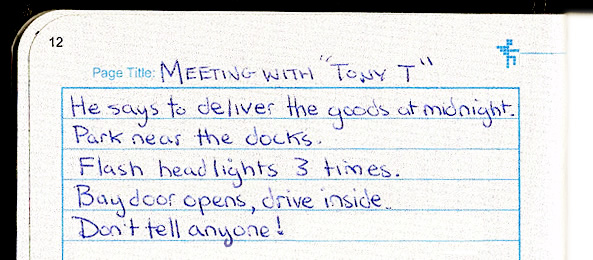 12
Page Title: MEETING WITH "TONY T"
He says to deliver the goods at midnight.
Park near the docks.
Flash headlights 3 times.
Bay door opens, drive inside.
Don't tell anyone!